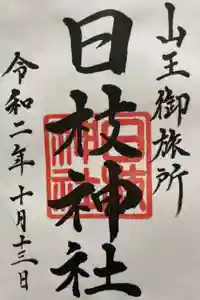 山王御旅所
日枝神社
令和二年十月十三日
日枝神社